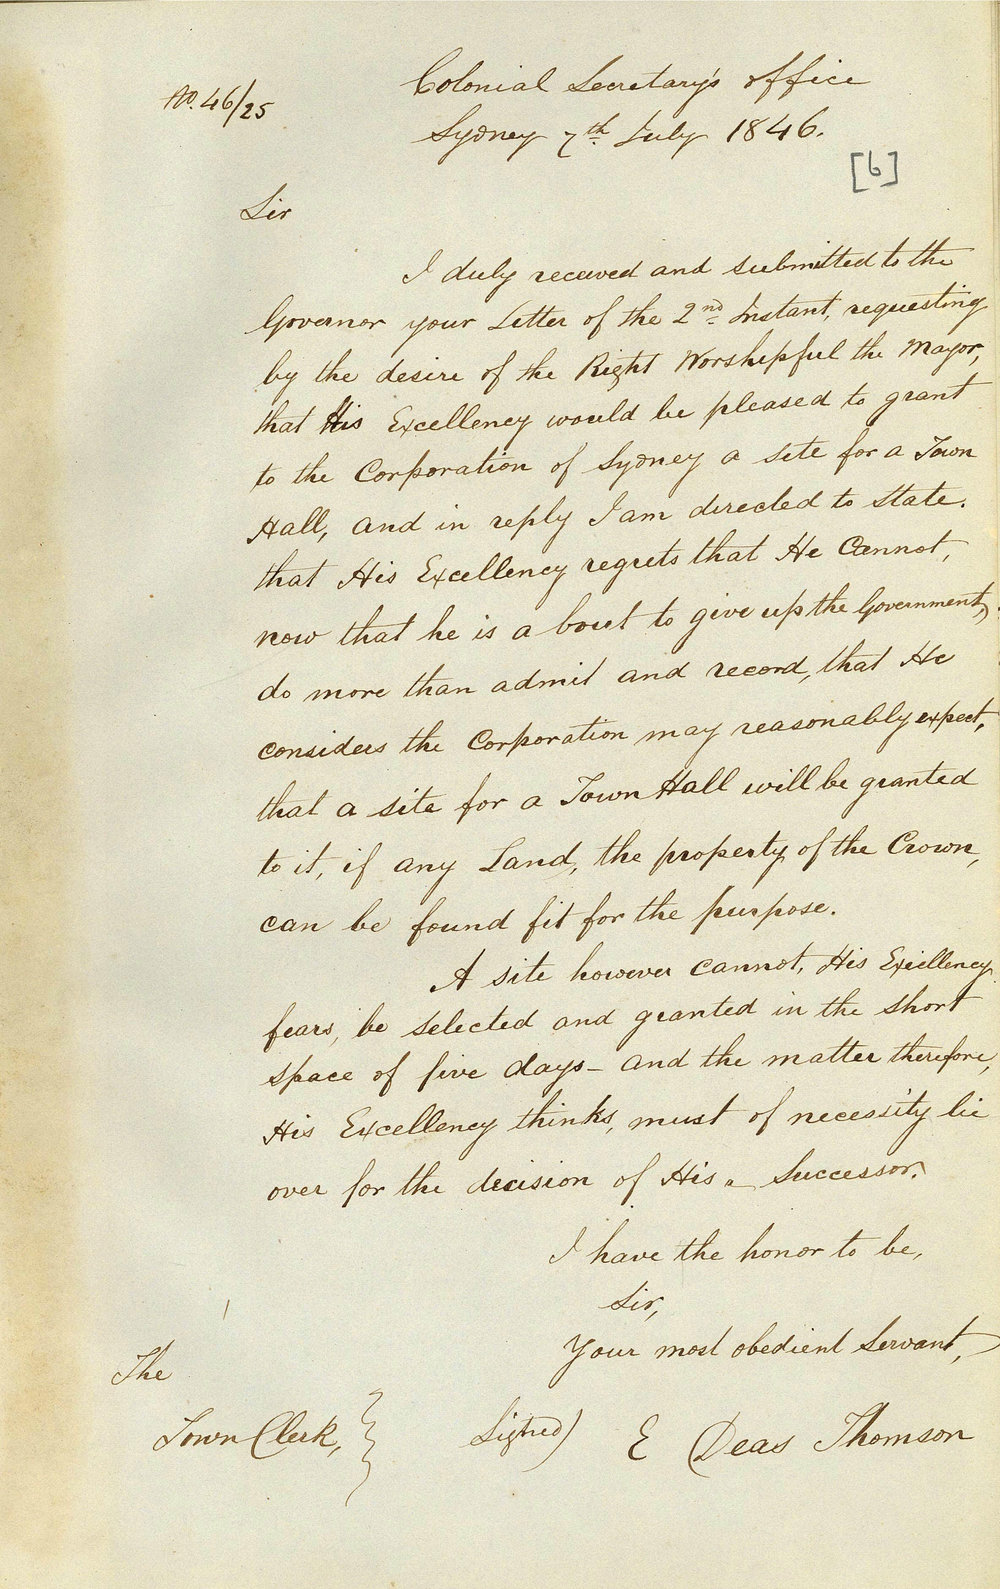 No. 46/25
Colonial Secretary's Office
Sydney 7th July 1846.
[6]
Sir
I duly received and submitted to the
Governor your Letter of the 2nd Instant, requesting
by the desire of the Right Worshipful the Mayor,
that His Excellency would be pleased to grant
to the Corporation of Sydney a site for a Town
Hall, and in reply I am directed to state.
that His Excellency regrets that He Cannot,
now that he is a bout to give up the Government,
do more than admit and record, that He
considers the Corporation may reasonably expect,
that a site for a Town Hall will be granted
to it, if any Land, the property of the Crown,
can be found fit for the purpose.
A site however cannot, His Excellency
fears, be selected and granted in the short
space of five days - and the matter therefore,
His Excellency thinks, must of necessity lie
over for the decision of His Successor.
I have the honor to be,
Sir,
Your most obedient Servant,
The
Town Clerk,
Signed) E Deas Thomson